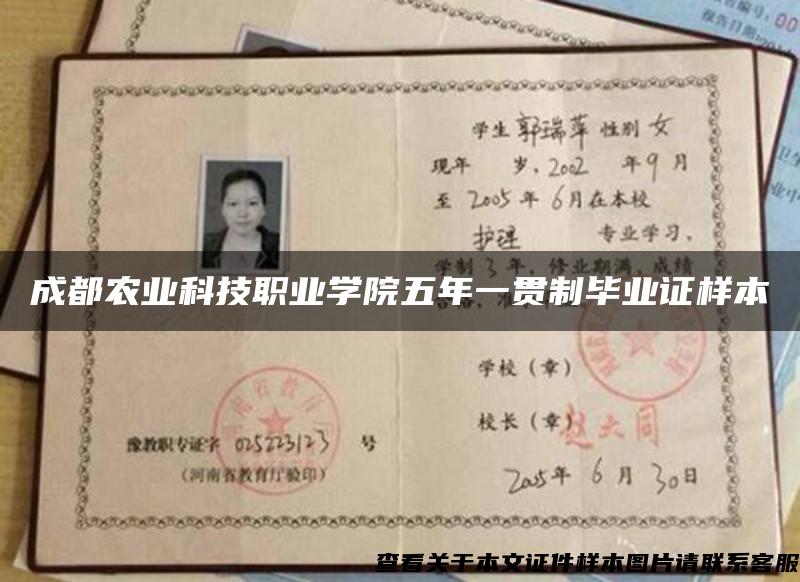 告编号：00
报告日期：201
学生 郭瑞萍 性别 女
现年 岁，2002 年 9 月
至 2005 年 6 月在本校
护理 专业学习，
学制 3 年，修业期满，成绩
成都农业科技职业学院五年一贯制毕业证样本
学校（章）
校长（章） 赵大同
豫教职专证字 025223123 号
（河南省教育厅验印）
2005 年 6 月 30 日
查看关于本文证件样本图片请联系客服